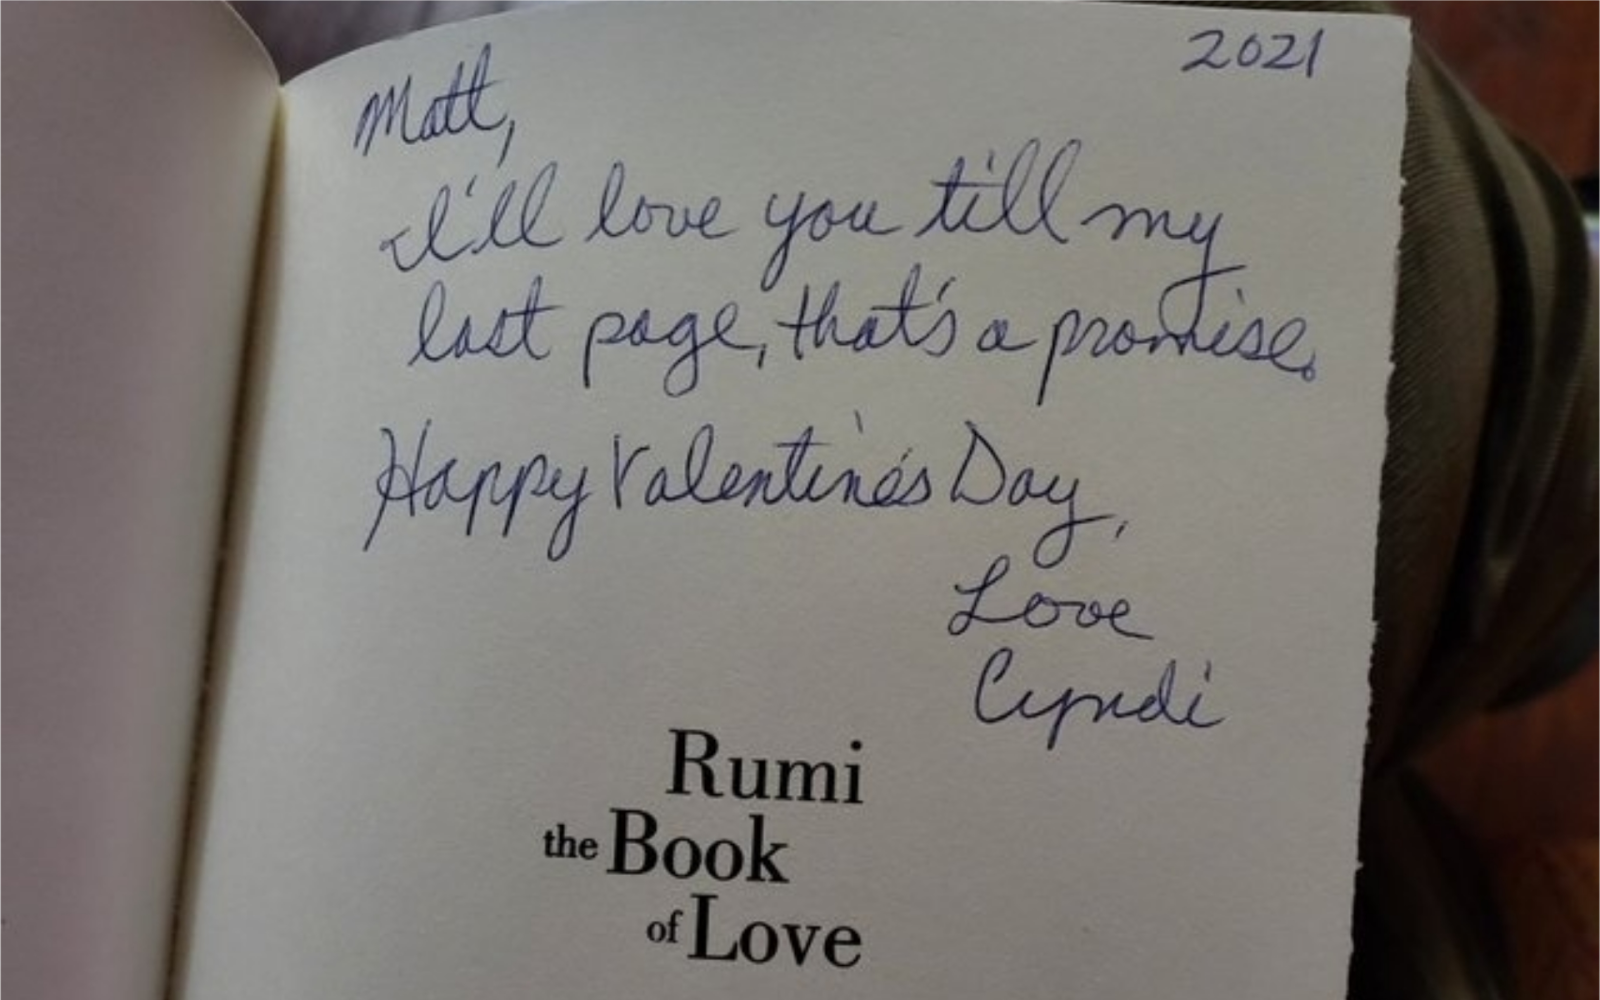 2021
Matt,
I'll love you till my
last page, that's a promise.
Happy Valentine's Day,
Love
Cyndi
Rumi
the Book
of Love